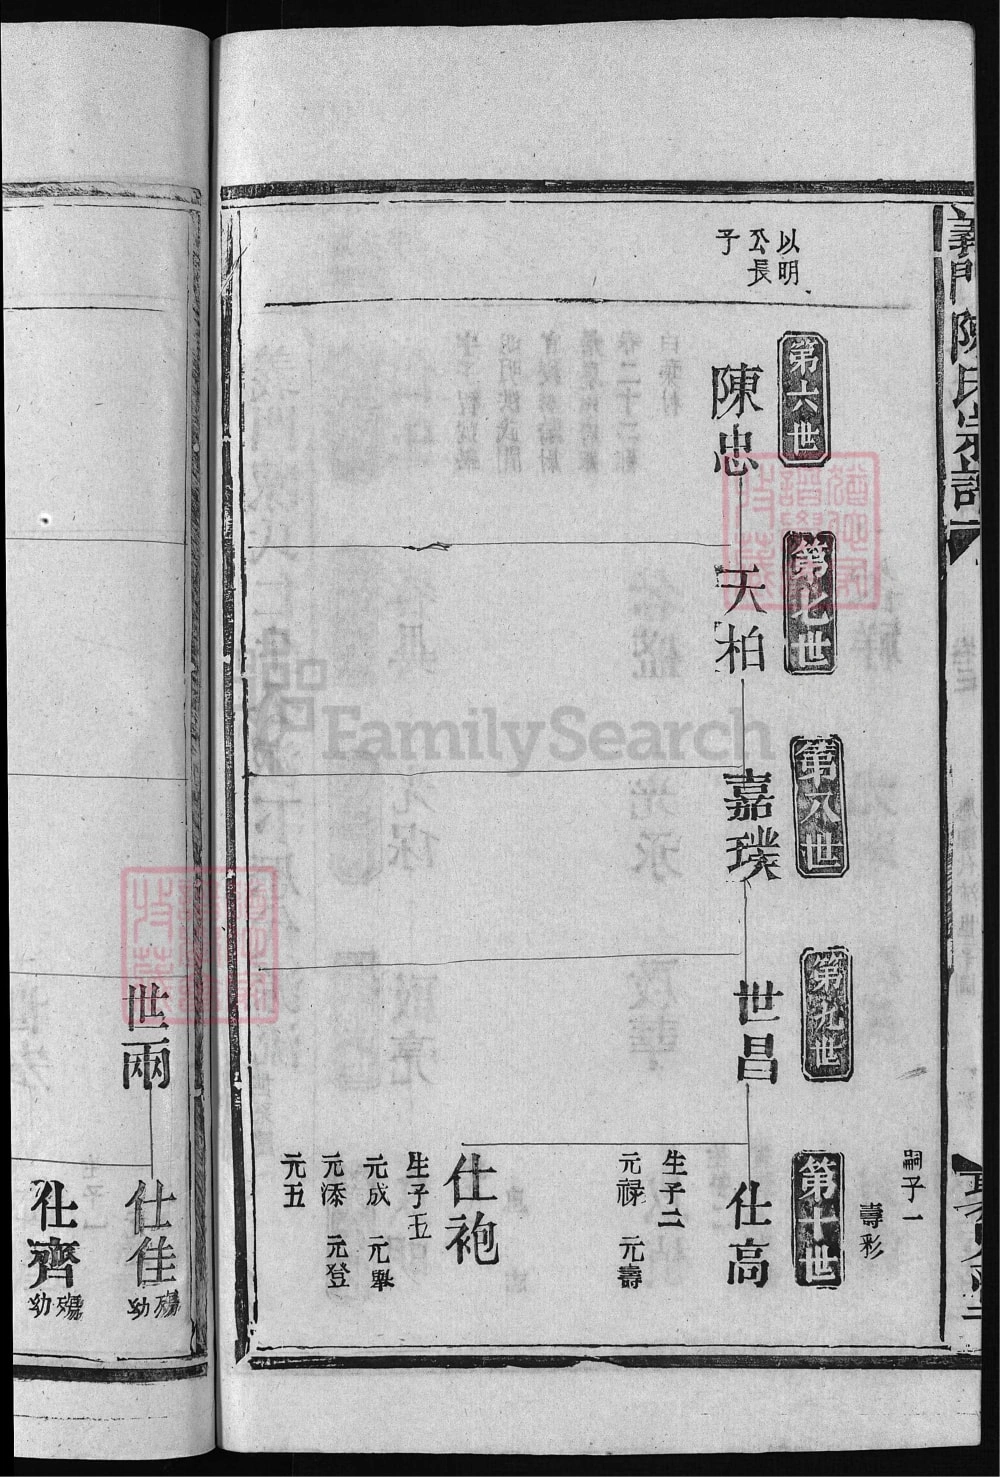 義門陳氏宗譜
嗣子一
壽彩
以明
公長
子
第六世
第七世
第八世
第九世
第十世
陳忠
天柏
嘉璞
世昌
仕高
生子二
元祿 元壽
仕袍
生子五
元成 元舉
元添 元登
元五
世兩
仕佳
殤
幼
仕齊
殤
幼
FamilySearch